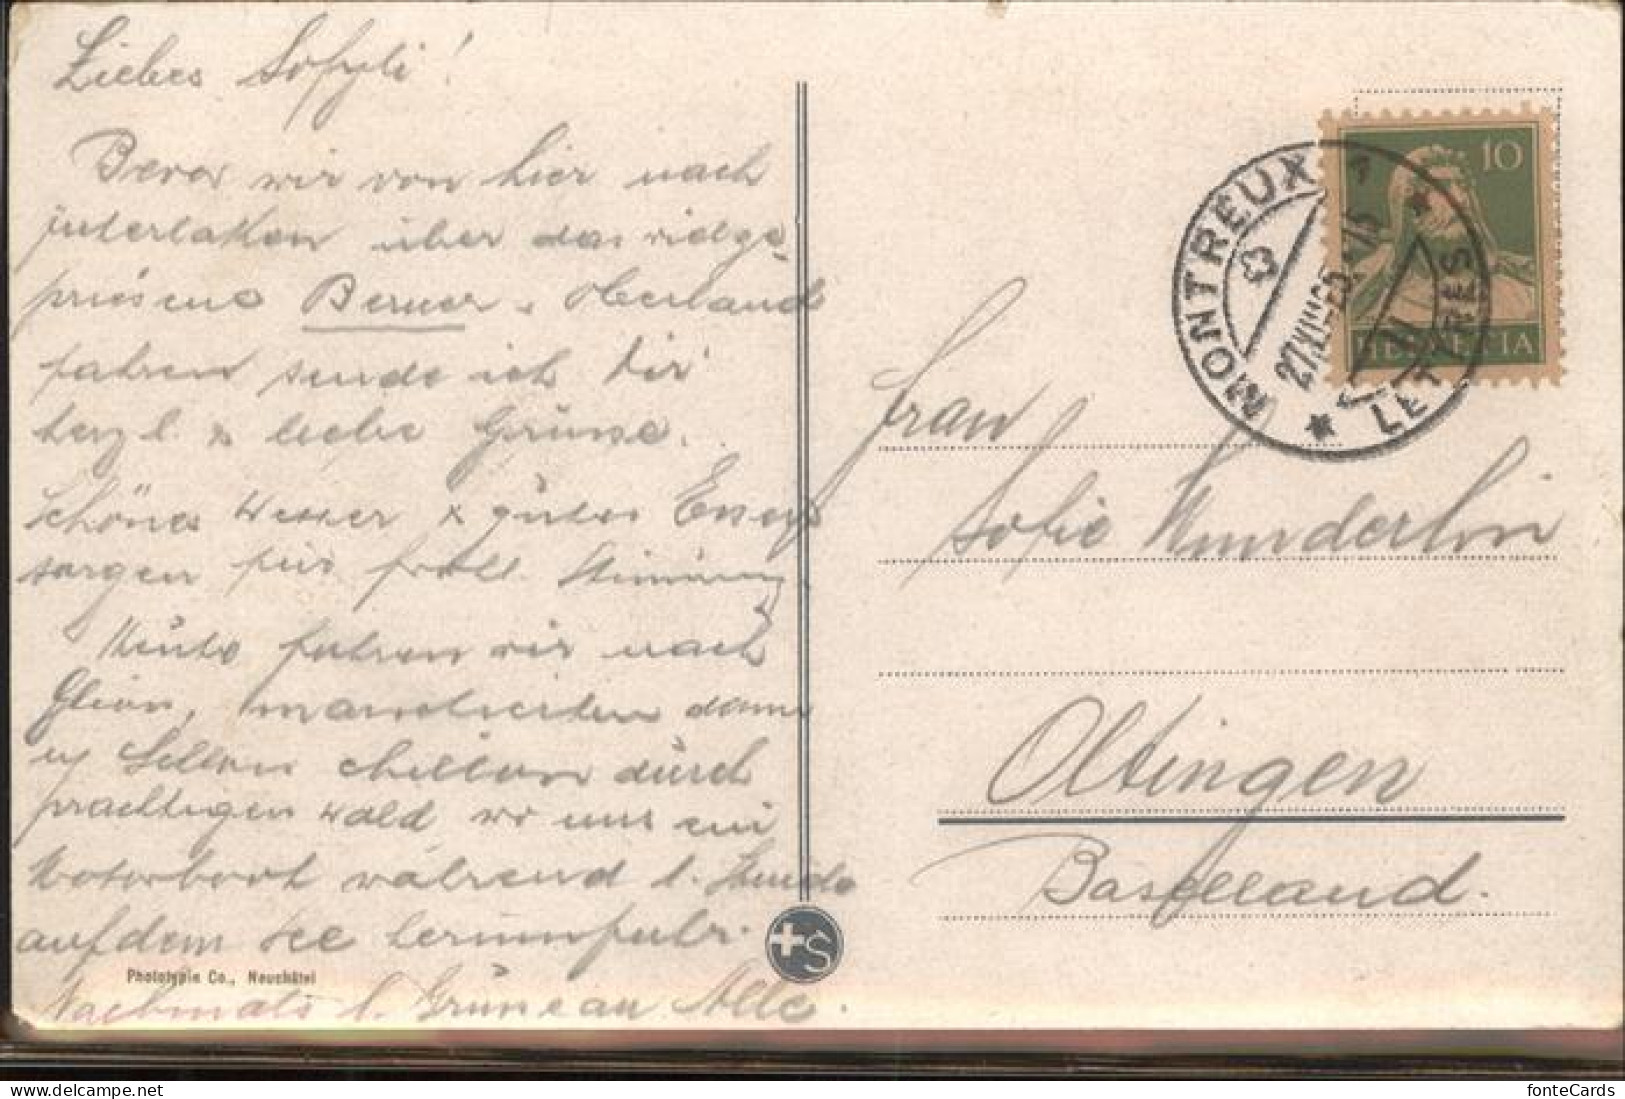 Liebes Sofyli!
Bevor wir von hier nach
interlaken über das vielge-
priesene Berner-Oberland
fahren sende ich Dir
herzl. & liebe Grüsse.
Schönes Wetter & gutes Essen
sorgen für Stimmung.
Heute fuhren wir nach
Glion, marschierten dann
durch
prachtigen Wald wo uns ein
Motorboot während 1. Stunde
auf dem See herumfuhr.
Nachmals l. Grüsse an Alle.
Phototypie Co., Neuchâtel
+S
10
HELVETIA
MONTREUX 1
LETTRES
Frau
Sofie Wunderlin
Oltingen
Baselland.
delcampe.net
fonteCards